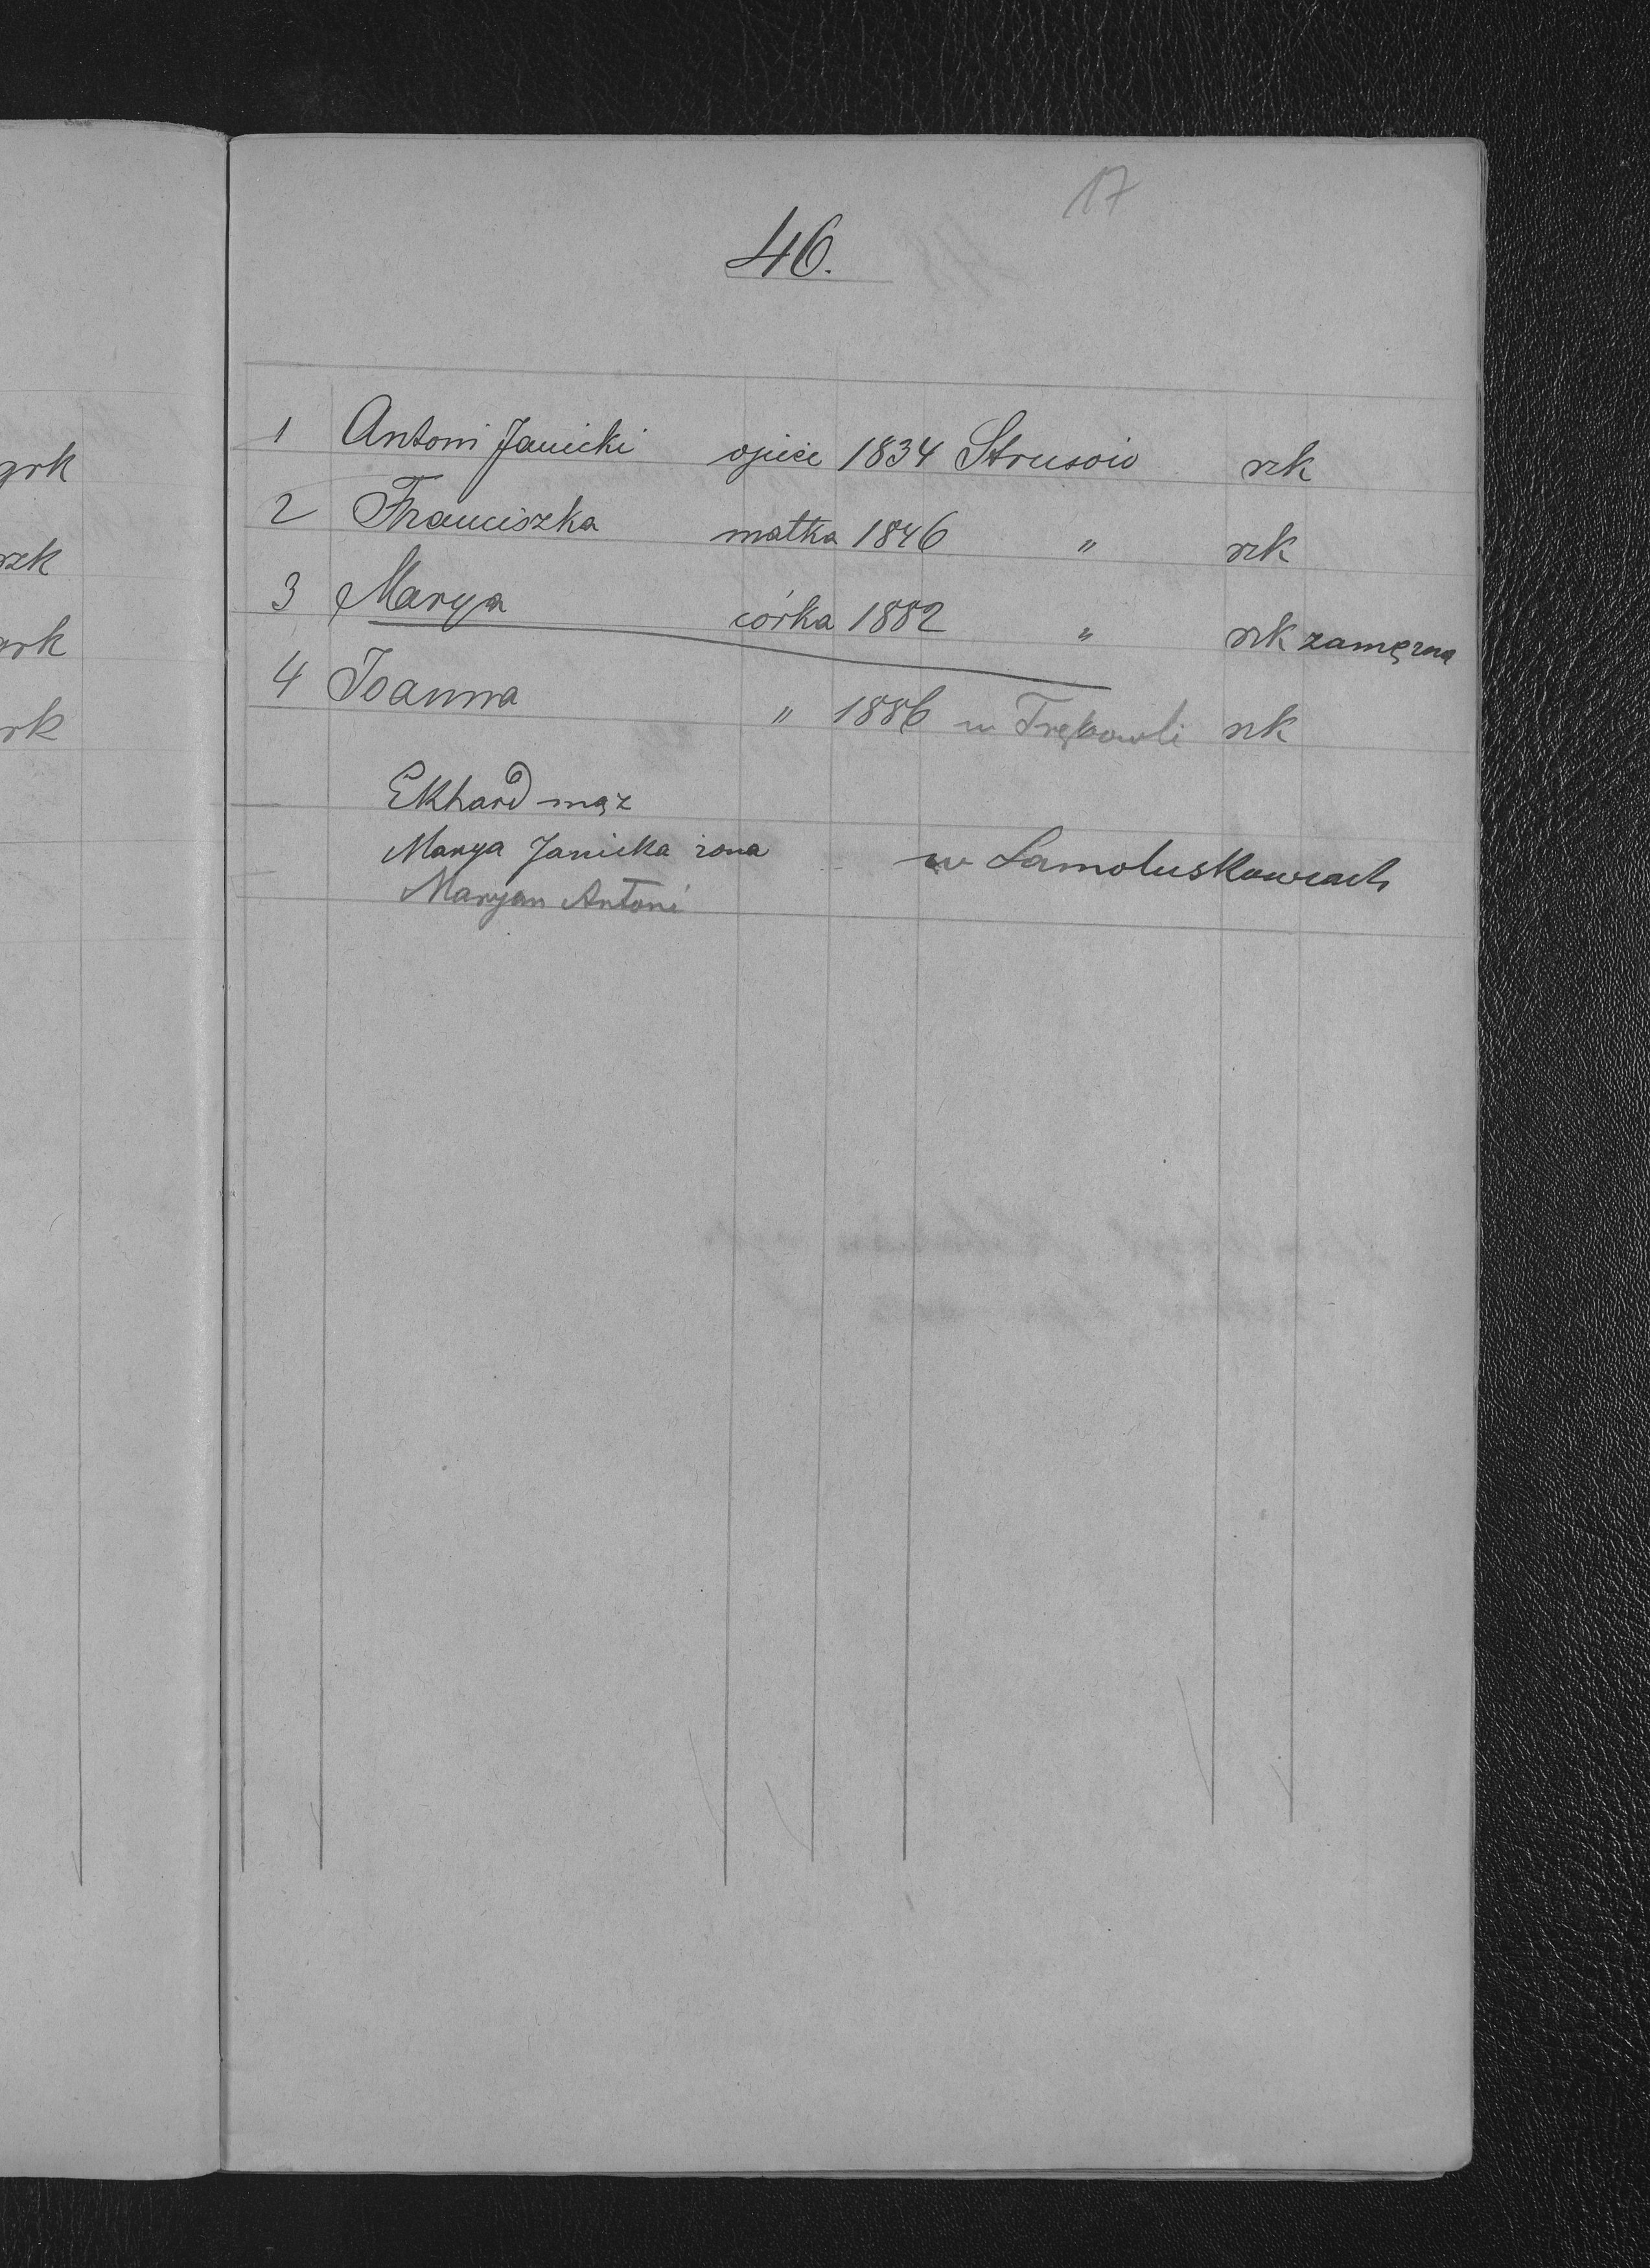 17
46.
1 Antoni Janicki ojciec 1834 Strusów rzk
2 Franciszka matka 1846 " rzk
3 Marya córka 1882 " rzk zamężna
4 Joanna " 1886 w Trębowli rzk
Ekhard mąż
Marya Janicka żona w Samoluskowcach
Maryan Antoni
grk
rzk
grk
rk